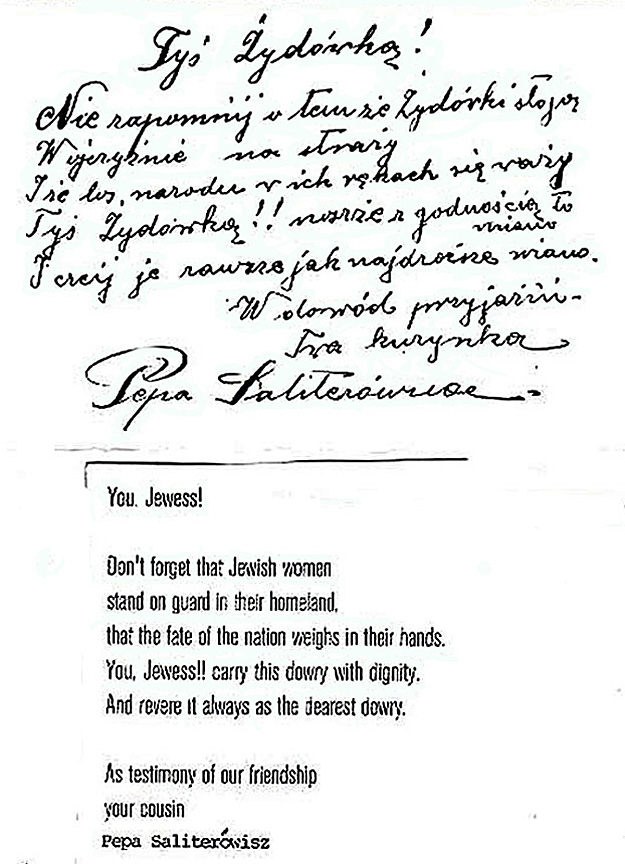 Tyś Żydówką!
Nie zapomnij o tem że Żydówki stoją
W ojczyźnie na straży
I że los, narodu w ich rękach się waży
Tyś Żydówką!! noś że z godnością to
miano
I czcij je zawsze jak najdroższe wiano.
W dowód przyjaźni-
Twa kuzynka
Pepa Saliterówna
You, Jewess!
Don't forget that Jewish women
stand on guard in their homeland,
that the fate of the nation weighs in their hands.
You, Jewess!! carry this dowry with dignity.
And revere it always as the dearest dowry.
As testimony of our friendship
your cousin
Pepa Saliterówisz